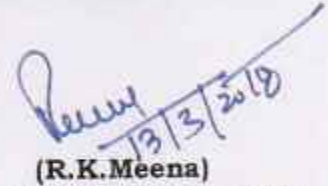 13/3/2018
(R.K.Meena)